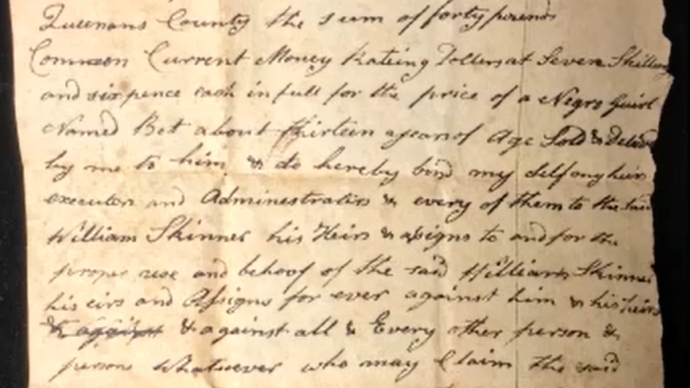 Queenans County the sum of forty pounds
Common Current Money Rateing Dollers at Seven Shillings
and sixpence each in full for the price of a Negro Guirl
Named Bet about thirteen ayears of Age Sold & deliverd
by me to him, & do hereby bind my self my heirs
executors and Administrators & every of them to the said
William Skinner his Heirs & asigns to and for the
proper use and behoof of the said William Skinner
his eirs and Assigns for ever against him & his heirs
& against & against all & Every other person &
persons Whatever who may Claim the said